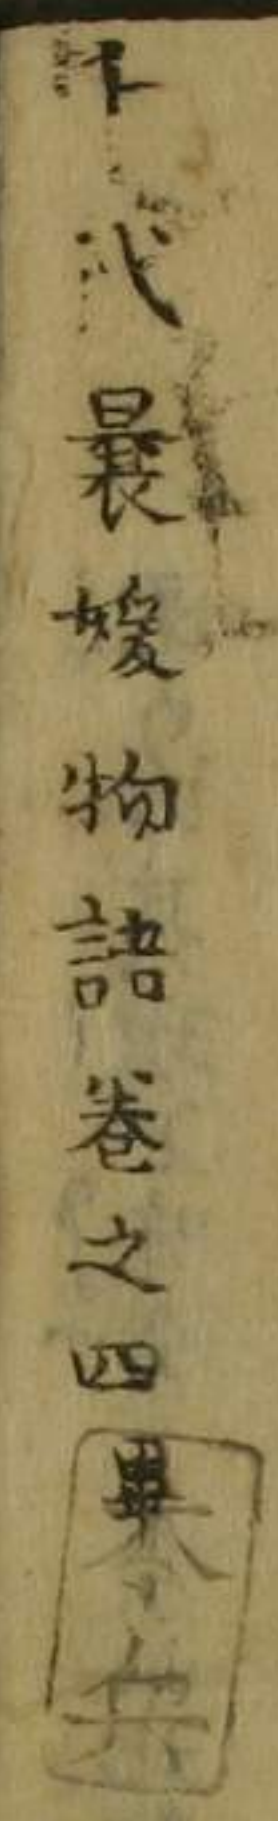 千代曩媛物語巻之四畢